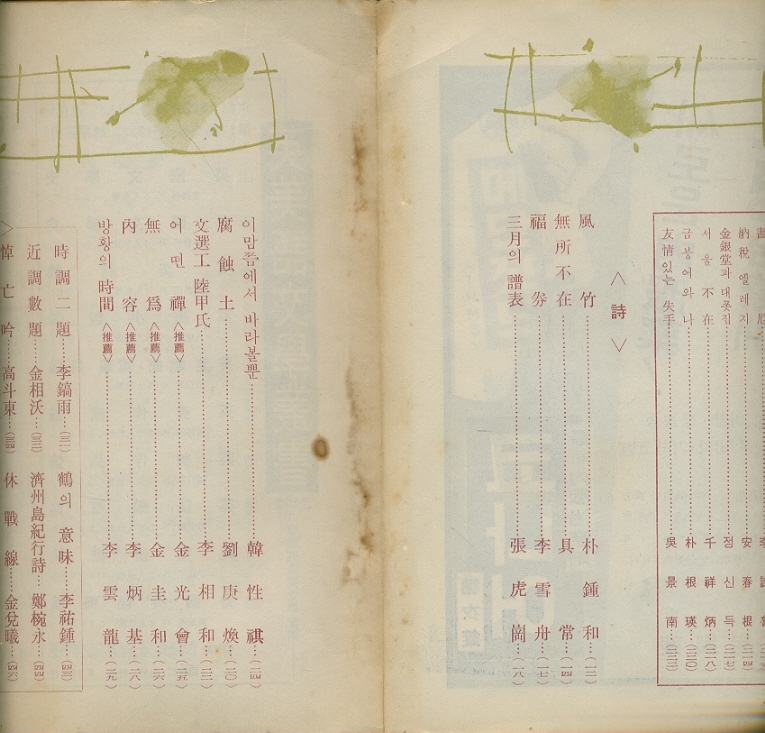 納稅 엘레지……安春根…(二一四)
金銀堂과 대폿집……정신득…(二一七)
서울 不在……千祥炳…(二一八)
금붕어와 나……朴根瑛…(二二〇)
友情있는 失手……吳景南…(二二三)
〈詩〉
風竹……朴鍾和…(一二)
無所不在……具常…(一四)
福券……李雪舟…(一七)
三月의 譜表……張虎崗…(一八)
이맘쯤에서 바라볼뿐……韓性祺…(二四)
腐蝕土……劉庚煥…(二〇)
文選工 陸甲氏……李相和…(二二)
어떤 禪〈推薦〉……金光會…(二五)
無爲〈推薦〉……金圭和…(二六)
內容〈推薦〉……李炳基…(二八)
방황의 時間〈推薦〉……李雲龍…(二九)
時調二題……李鎬雨… 鶴의 意味……李祐鍾…
近調數題……金相沃… 濟州島紀行詩……鄭椀永…(四四)
悼亡吟……高斗東… 休戰線……金兌曦…(四六)